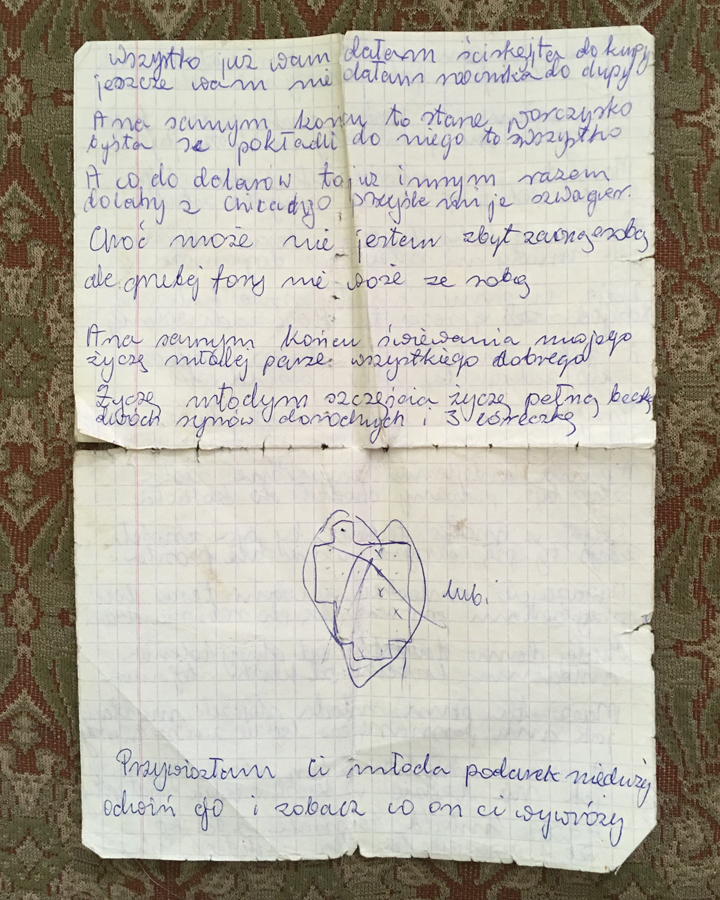 wszystko już wam dałam ściskejta do kupy
jeszcze wam nie dałam nocnika do dupy
A na samym końcu to stare worczysko
byśta se pokładli do niego to wszytko
A co do dolarów to już innym razem
dolary z Chicadzo przyśle mi je szwagier.
Choć może nie jestem zbyt
ale grubej forsy nie woże ze sobą
A na samym końcu śwíewania mojego
życzę młodej parze wszystkiego dobrego
Życzę młodym szczęścia życzę pełną beczkę
dwóch synów dorodnych i 3 córeczką
lubi
Przywiozłam Ci młoda podarek nieduży
odwiń go i zobacz co on ci wywróży